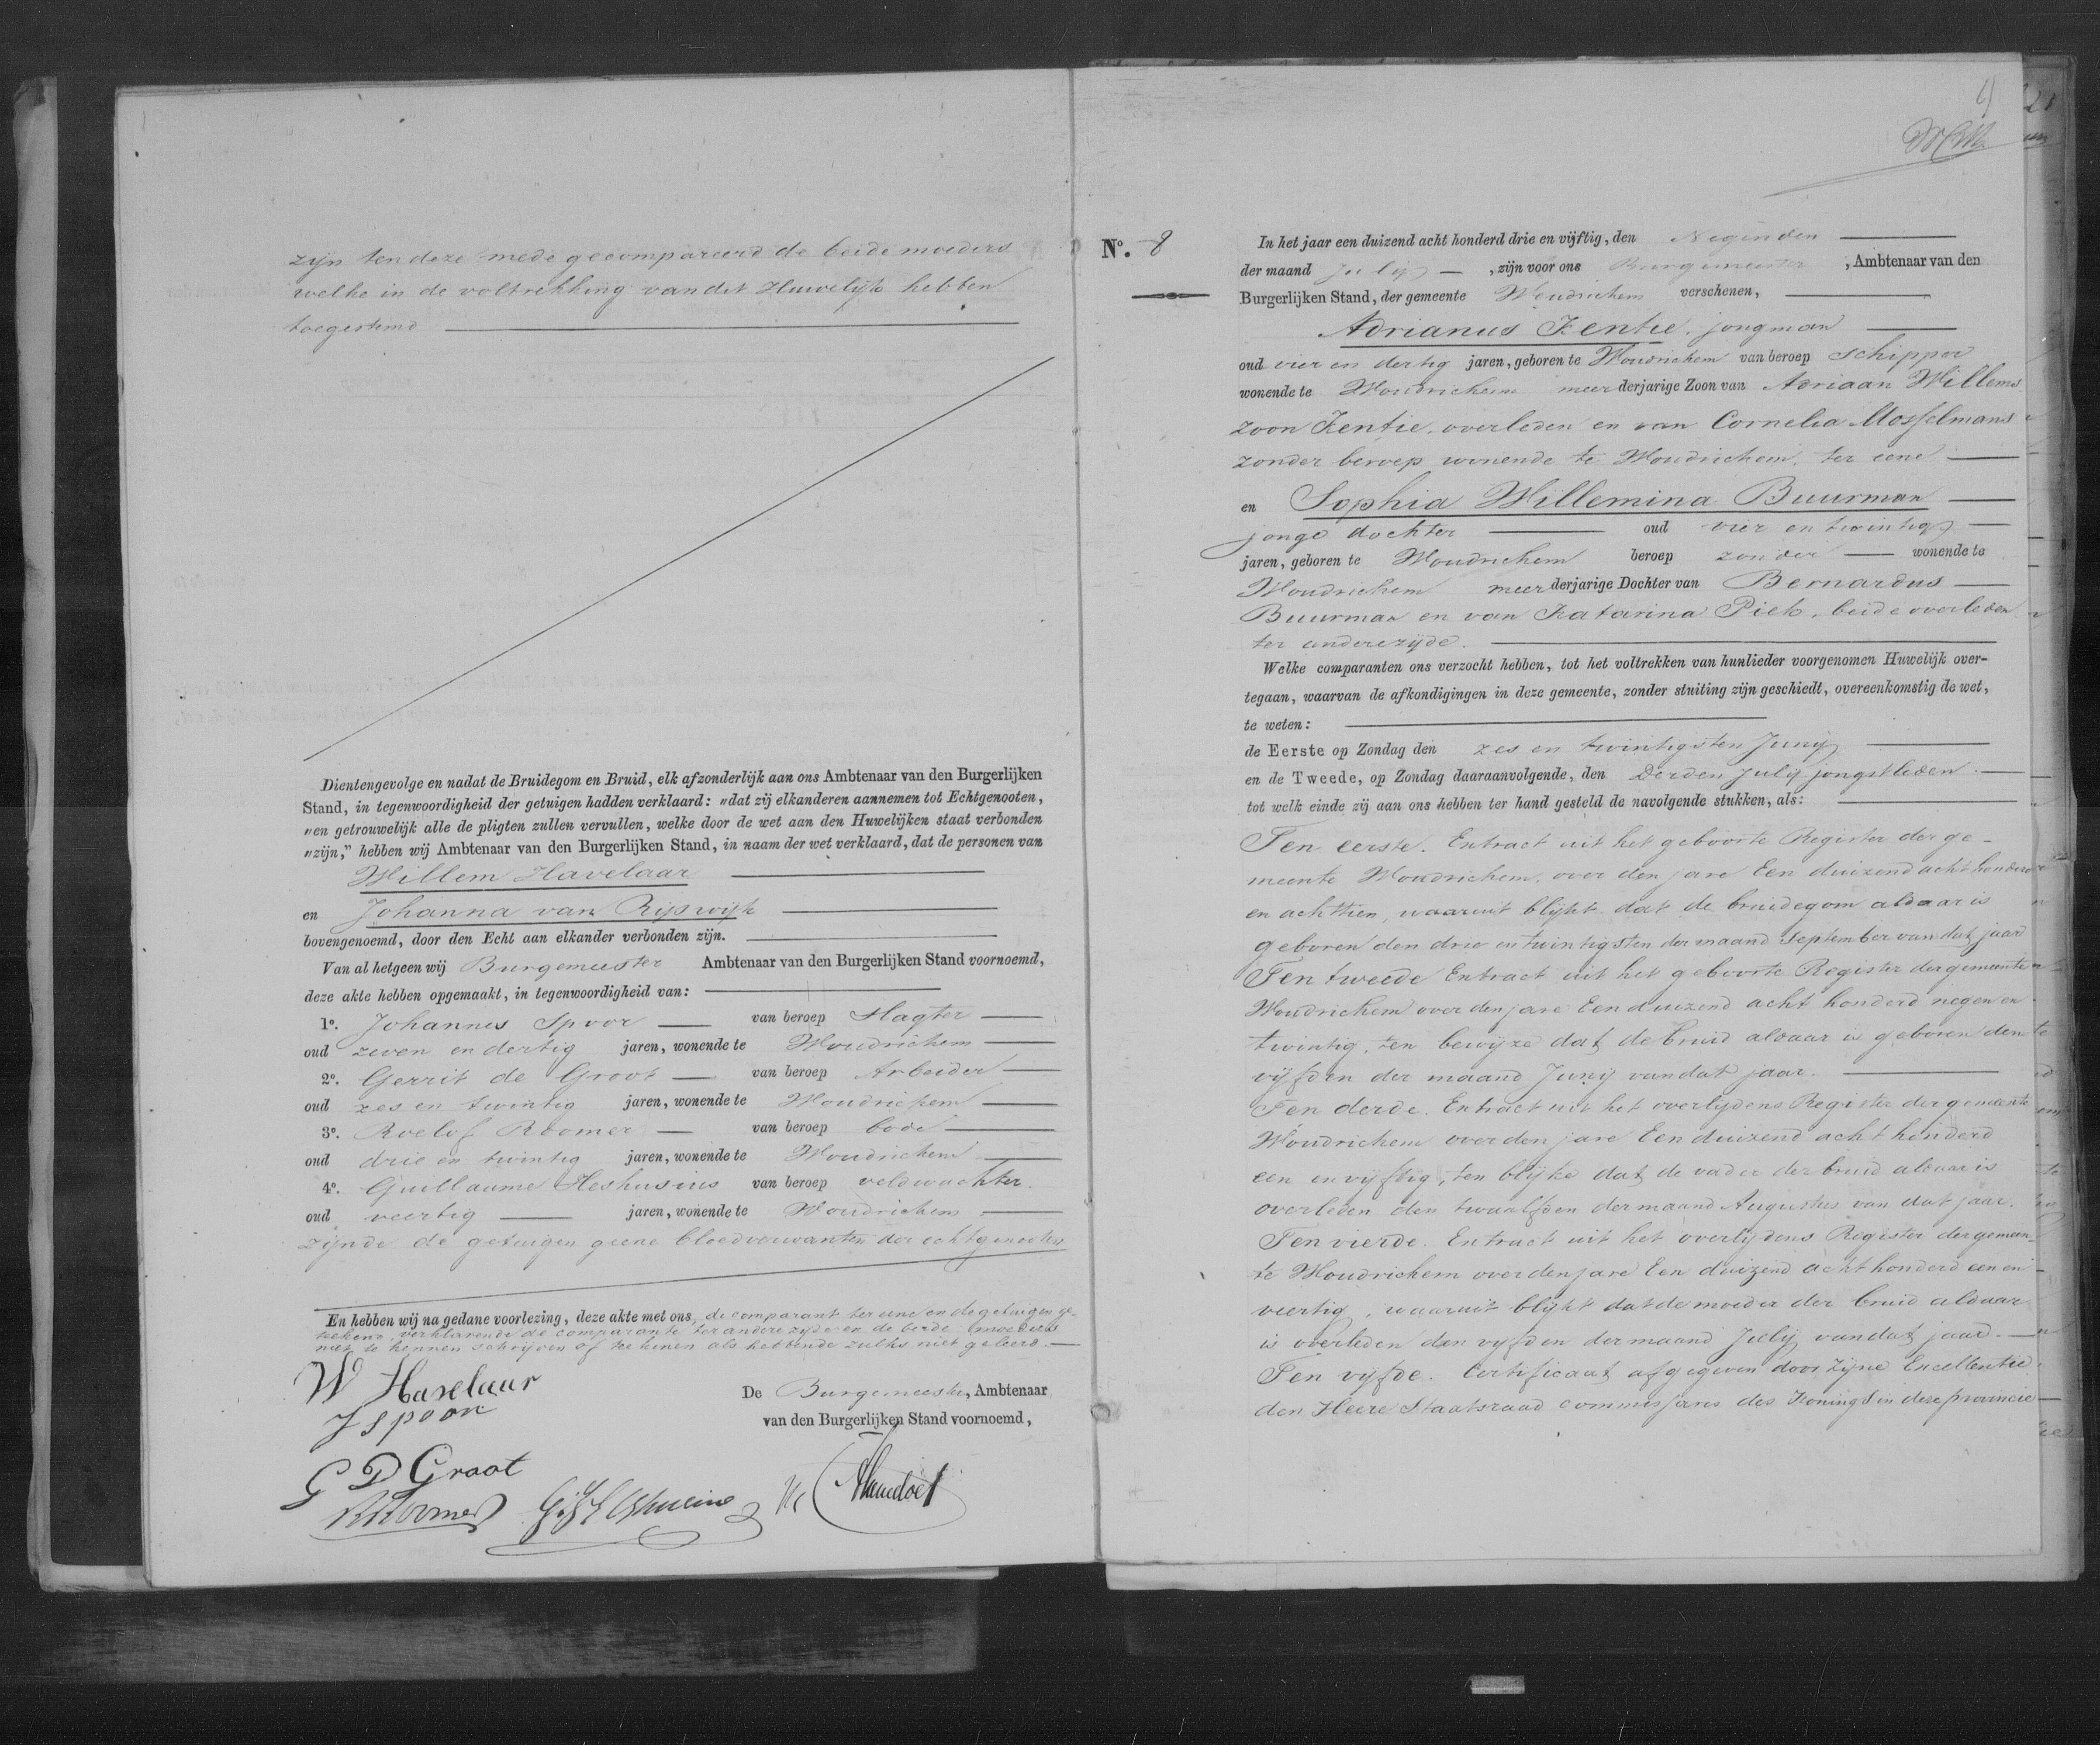 zijn ten deze mede gecompareerd de beide moeders
welke in de voltrekking van dit Huwelijk hebben
toegestemd
Dientengevolge en nadat de Bruidegom en Bruid, elk afzonderlijk aan ons Ambtenaar van den Burgerlijken
Stand, in tegenwoordigheid der getuigen hadden verklaard: „dat zij elkanderen aannemen tot Echtgenooten,
„en getrouwelijk alle de pligten zullen vervullen, welke door de wet aan den Huwelijken staat verbonden
„zijn,” hebben wij Ambtenaar van den Burgerlijken Stand, in naam der wet verklaard, dat de personen van
Willem Havelaar
en Johanna van Rijswijk
bovengenoemd, door den Echt aan elkander verbonden zijn.
Van al hetgeen wij Burgemeester Ambtenaar van den Burgerlijken Stand voornoemd,
deze akte hebben opgemaakt, in tegenwoordigheid van:
1º. Johannes Spoor van beroep Slagter
oud zeven en dertig jaren, wonende te Woudrichem
2º. Gerrit de Groot van beroep Arbeider
oud zes en twintig jaren, wonende te Woudrichem
3º. Roelof Roomer van beroep bode
oud drie en twintig jaren, wonende te Woudrichem
4º. Guillaume Heshusius van beroep veldwachter.
oud veertig jaren, wonende te Woudrichem
zijnde de getuigen geene bloedverwanten der echtgenooten
En hebben wij na gedane voorlezing, deze akte met ons, de comparant ter eene en de getuigen ge-
tekend verklarende de comparante ter andere zijde en de beide moeders
niet te kennen schrijven of tekenen als hebbende zulks niet geleerd.
W Havelaar
J Spoor
De Burgemeester, Ambtenaar
van den Burgerlijken Stand voornoemd,
G D Groot
R Roomer
Nº. 8
In het jaar een duizend acht honderd drie en vijftig, den Neginden
der maand Julij, zijn voor ons Burgemeester, Ambtenaar van den
Burgerlijken Stand, der gemeente Woudrichem verschenen,
Adrianus Kentie, jongman
oud vier en dertig jaren, geboren te Woudrichem van beroep Schipper
wonende te Woudrichem meerderjarige Zoon van Adriaan Willems
zoon Kentie, overleden en van Cornelia Mosselmans
zonder beroep wonende te Woudrichem, ter eene
en Sophia Willemina Buurman
jonge dochter oud vier en twintig
jaren, geboren te Woudrichem beroep zonder wonende te
Woudrichem meerderjarige Dochter van Bernardus
Buurman en van Katarina Piek, beide overleden
ter anderezijde.
Welke comparanten ons verzocht hebben, tot het voltrekken van hunlieder voorgenomen Huwelijk over-
tegaan, waarvan de afkondigingen in deze gemeente, zonder stuiting zijn geschiedt, overeenkomstig de wet,
te weten:
de Eerste op Zondag den zes en twintigsten Junij
en de Tweede, op Zondag daaraanvolgende, den derden Julij jongstleden.
tot welk einde zij aan ons hebben ter hand gesteld de navolgende stukken, als:
Ten eerste. Extract uit het geboorte Register der ge-
meente Woudrichem, over den jare Een duizend acht honderd
en achttien, waaruit blijkt dat de bruidegom aldaar is
geboren den drie en twintigsten der maand September van dat jaar
Ten tweede Extract uit het geboorte Register der gemeente
Woudrichem over den jare Een duizend acht honderd negen en
twintig, ten bewijze dat de bruid aldaar is geboren den
vijfden der maand Junij van dat jaar.
Ten derde. Extract uit het overlijdens Register der gemeente
Woudrichem over den jare Een duizend acht honderd
een en vijftig, ten blijke dat de vader der bruid aldaar is
overleden den twaalfden der maand Augustus van dat jaar.
Ten vierde. Extract uit het overlijdens Register der gemeen-
te Woudrichem over den jare Een duizend acht honderd een en
veertig, waaruit blijkt dat de moeder der bruid aldaar
is overleden den vijfden der maand Julij van dat jaar.
Ten vijfde. Certificaat afgegeven door Zijne Excellentie
den Heere Staatsraad commissaris des Konings in deze provincie